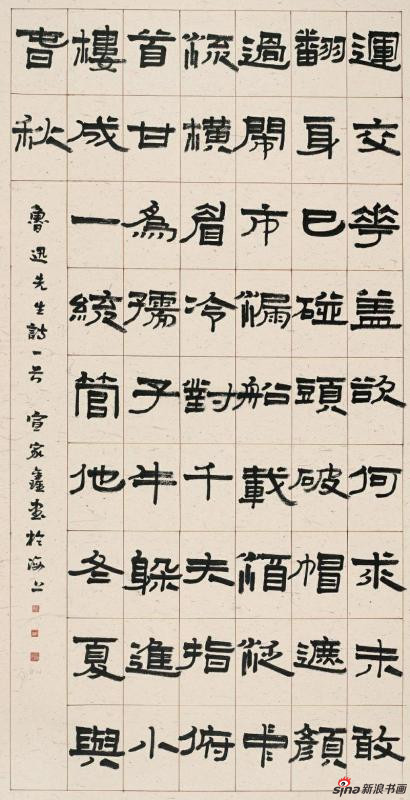 運交華盖欲何求未敢
翻身已碰頭破帽遮顏
過鬧市漏船載酒泛中
流横眉冷對千夫指俯
首甘為孺子牛躲進小
樓成一統管他冬夏與
春秋
魯迅先生詩一首 宣家鑫書於海上
sina新浪书画